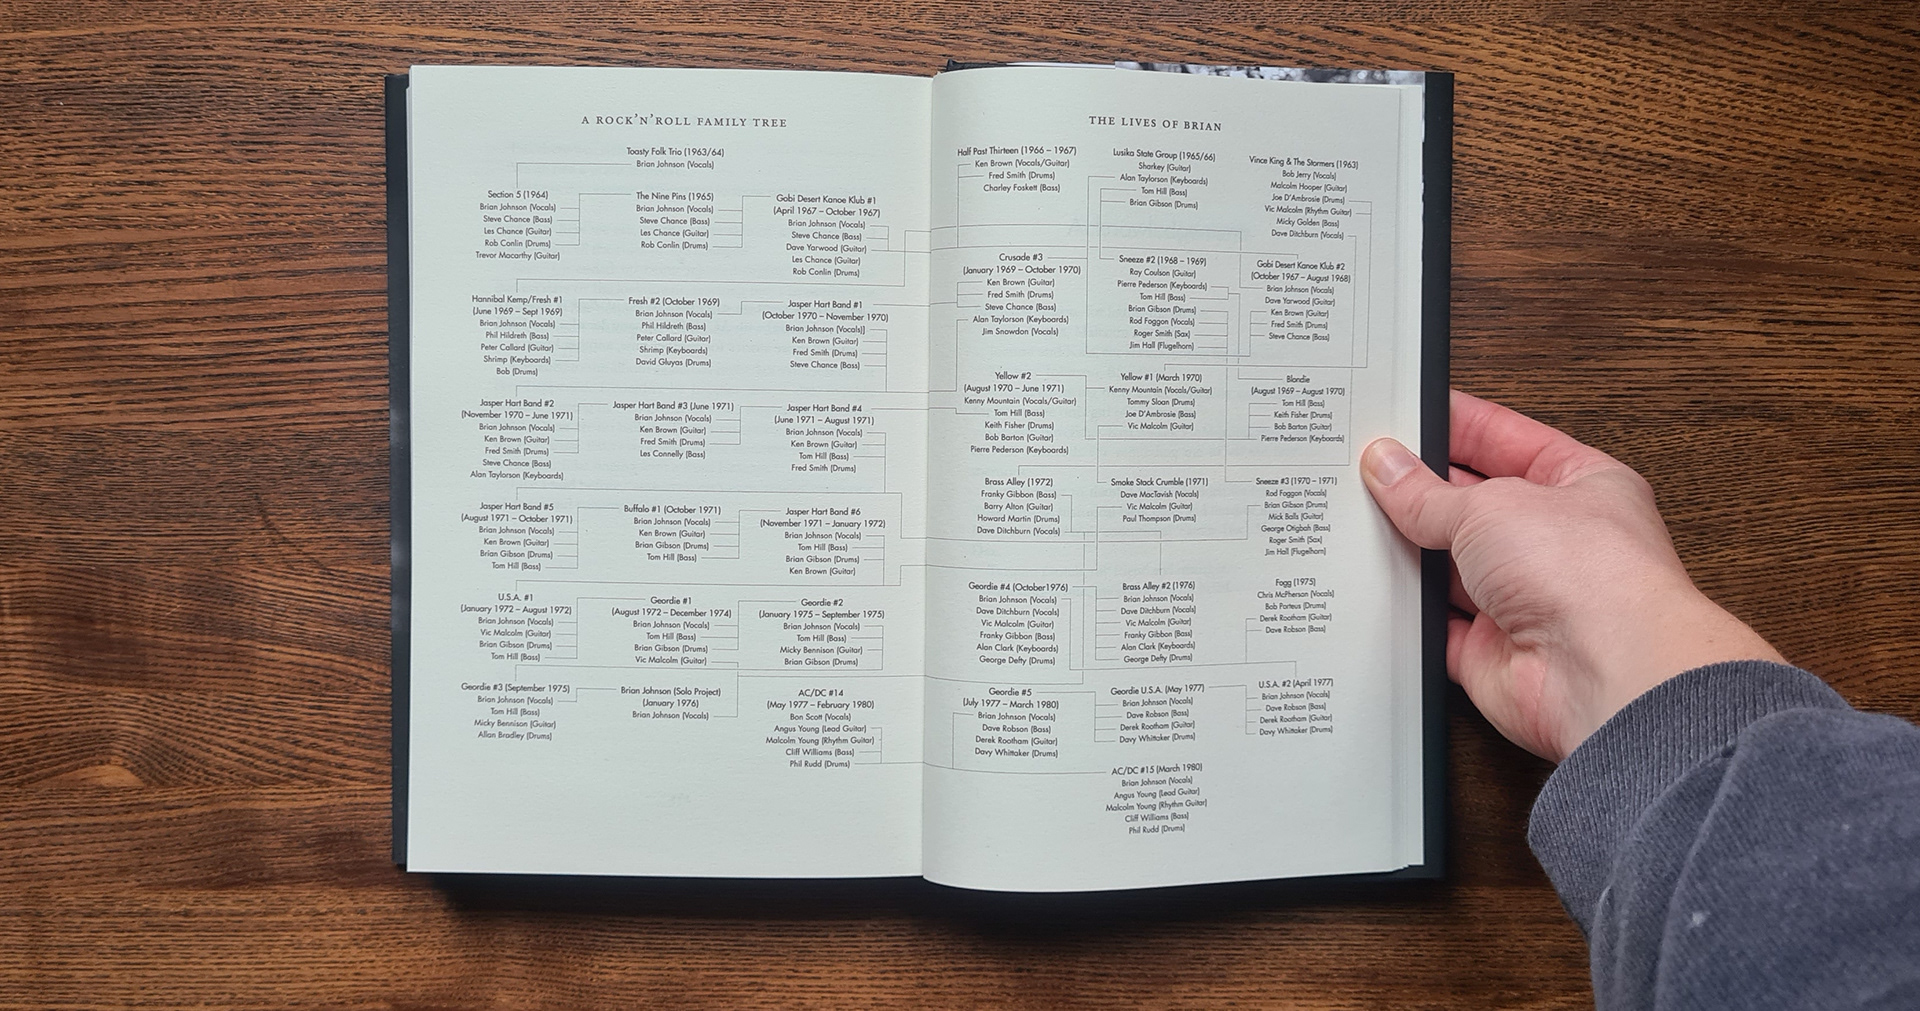 A ROCK'N'ROLL FAMILY TREE
Toasty Folk Trio (1963/64)
Brian Johnson (Vocals)
Section 5 (1964)
Brian Johnson (Vocals)
Steve Chance (Bass)
Les Chance (Guitar)
Rob Conlin (Drums)
Trevor Macarthy (Guitar)
The Nine Pins (1965)
Brian Johnson (Vocals)
Steve Chance (Bass)
Les Chance (Guitar)
Rob Conlin (Drums)
Gobi Desert Kanoe Klub #1
(April 1967 – October 1967)
Brian Johnson (Vocals)
Steve Chance (Bass)
Dave Yarwood (Guitar)
Les Chance (Guitar)
Rob Conlin (Drums)
Hannibal Kemp/Fresh #1
(June 1969 – Sept 1969)
Brian Johnson (Vocals)
Phil Hildreth (Bass)
Peter Callard (Guitar)
Shrimp (Keyboards)
Bob (Drums)
Fresh #2 (October 1969)
Brian Johnson (Vocals)
Phil Hildreth (Bass)
Peter Callard (Guitar)
Shrimp (Keyboards)
David Gluyas (Drums)
Jasper Hart Band #1
(October 1970 – November 1970)
Brian Johnson (Vocals)]
Ken Brown (Guitar)
Fred Smith (Drums)
Steve Chance (Bass)
Jasper Hart Band #2
(November 1970 – June 1971)
Brian Johnson (Vocals)
Ken Brown (Guitar)
Fred Smith (Drums)
Steve Chance (Bass)
Alan Taylorson (Keyboards)
Jasper Hart Band #3 (June 1971)
Brian Johnson (Vocals)
Ken Brown (Guitar)
Fred Smith (Drums)
Les Connelly (Bass)
Jasper Hart Band #4
(June 1971 – August 1971)
Brian Johnson (Vocals)
Ken Brown (Guitar)
Tom Hill (Bass)
Fred Smith (Drums)
Jasper Hart Band #5
(August 1971 – October 1971)
Brian Johnson (Vocals)
Ken Brown (Guitar)
Brian Gibson (Drums)
Tom Hill (Bass)
Buffalo #1 (October 1971)
Brian Johnson (Vocals)
Ken Brown (Guitar)
Brian Gibson (Drums)
Tom Hill (Bass)
Jasper Hart Band #6
(November 1971 – January 1972)
Brian Johnson (Vocals)
Tom Hill (Bass)
Brian Gibson (Drums)
Ken Brown (Guitar)
U.S.A. #1
(January 1972 – August 1972)
Brian Johnson (Vocals)
Vic Malcolm (Guitar)
Brian Gibson (Drums)
Tom Hill (Bass)
Geordie #1
(August 1972 – December 1974)
Brian Johnson (Vocals)
Tom Hill (Bass)
Brian Gibson (Drums)
Vic Malcolm (Guitar)
Geordie #2
(January 1975 – September 1975)
Brian Johnson (Vocals)
Tom Hill (Bass)
Micky Bennison (Guitar)
Brian Gibson (Drums)
Geordie #3 (September 1975)
Brian Johnson (Vocals)
Tom Hill (Bass)
Micky Bennison (Guitar)
Allan Bradley (Drums)
Brian Johnson (Solo Project)
(January 1976)
Brian Johnson (Vocals)
AC/DC #14
(May 1977 – February 1980)
Bon Scott (Vocals)
Angus Young (Lead Guitar)
Malcolm Young (Rhythm Guitar)
Cliff Williams (Bass)
Phil Rudd (Drums)
THE LIVES OF BRIAN
Half Past Thirteen (1966 – 1967)
Ken Brown (Vocals/Guitar)
Fred Smith (Drums)
Charley Foskett (Bass)
Lusika State Group (1965/66)
Sharkey (Guitar)
Alan Taylorson (Keyboards)
Tom Hill (Bass)
Brian Gibson (Drums)
Vince King & The Stormers (1963)
Bob Jerry (Vocals)
Malcolm Hooper (Guitar)
Joe D'Ambrosie (Drums)
Vic Malcolm (Rhythm Guitar)
Micky Golden (Bass)
Dave Ditchburn (Vocals)
Crusade #3
(January 1969 – October 1970)
Ken Brown (Guitar)
Fred Smith (Drums)
Steve Chance (Bass)
Alan Taylorson (Keyboards)
Jim Snowdon (Vocals)
Sneeze #2 (1968 – 1969)
Ray Coulson (Guitar)
Pierre Pederson (Keyboards)
Tom Hill (Bass)
Brian Gibson (Drums)
Rod Foggon (Vocals)
Roger Smith (Sax)
Jim Hall (Flugelhorn)
Gobi Desert Kanoe Klub #2
(October 1967 – August 1968)
Brian Johnson (Vocals)
Dave Yarwood (Guitar)
Ken Brown (Guitar)
Fred Smith (Drums)
Steve Chance (Bass)
Yellow #2
(August 1970 – June 1971)
Kenny Mountain (Vocals/Guitar)
Tom Hill (Bass)
Keith Fisher (Drums)
Bob Barton (Guitar)
Pierre Pederson (Keyboards)
Yellow #1 (March 1970)
Kenny Mountain (Vocals/Guitar)
Tommy Sloan (Drums)
Joe D'Ambrosie (Bass)
Vic Malcolm (Guitar)
Blondie
(August 1969 – August 1970)
Tom Hill (Bass)
Keith Fisher (Drums)
Bob Barton (Guitar)
Pierre Pederson (Keyboards)
Brass Alley (1972)
Franky Gibbon (Bass)
Barry Alton (Guitar)
Howard Martin (Drums)
Dave Ditchburn (Vocals)
Smoke Stack Crumble (1971)
Dave MacTavish (Vocals)
Vic Malcolm (Guitar)
Paul Thompson (Drums)
Sneeze #3 (1970 – 1971)
Rod Foggon (Vocals)
Brian Gibson (Drums)
Mick Balls (Guitar)
George Otigbah (Bass)
Roger Smith (Sax)
Jim Hall (Flugelhorn)
Geordie #4 (October1976)
Brian Johnson (Vocals)
Dave Ditchburn (Vocals)
Vic Malcolm (Guitar)
Franky Gibbon (Bass)
Alan Clark (Keyboards)
George Defty (Drums)
Brass Alley #2 (1976)
Brian Johnson (Vocals)
Dave Ditchburn (Vocals)
Vic Malcolm (Guitar)
Franky Gibbon (Bass)
Alan Clark (Keyboards)
George Defty (Drums)
Fogg (1975)
Chris McPherson (Vocals)
Bob Porteus (Drums)
Derek Rootham (Guitar)
Dave Robson (Bass)
Geordie #5
(July 1977 – March 1980)
Brian Johnson (Vocals)
Dave Robson (Bass)
Derek Rootham (Guitar)
Davy Whittaker (Drums)
Geordie U.S.A. (May 1977)
Brian Johnson (Vocals)
Dave Robson (Bass)
Derek Rootham (Guitar)
Davy Whittaker (Drums)
U.S.A. #2 (April 1977)
Brian Johnson (Vocals)
Dave Robson (Bass)
Derek Rootham (Guitar)
Davy Whittaker (Drums)
AC/DC #15 (March 1980)
Brian Johnson (Vocals)
Angus Young (Lead Guitar)
Malcolm Young (Rhythm Guitar)
Cliff Williams (Bass)
Phil Rudd (Drums)